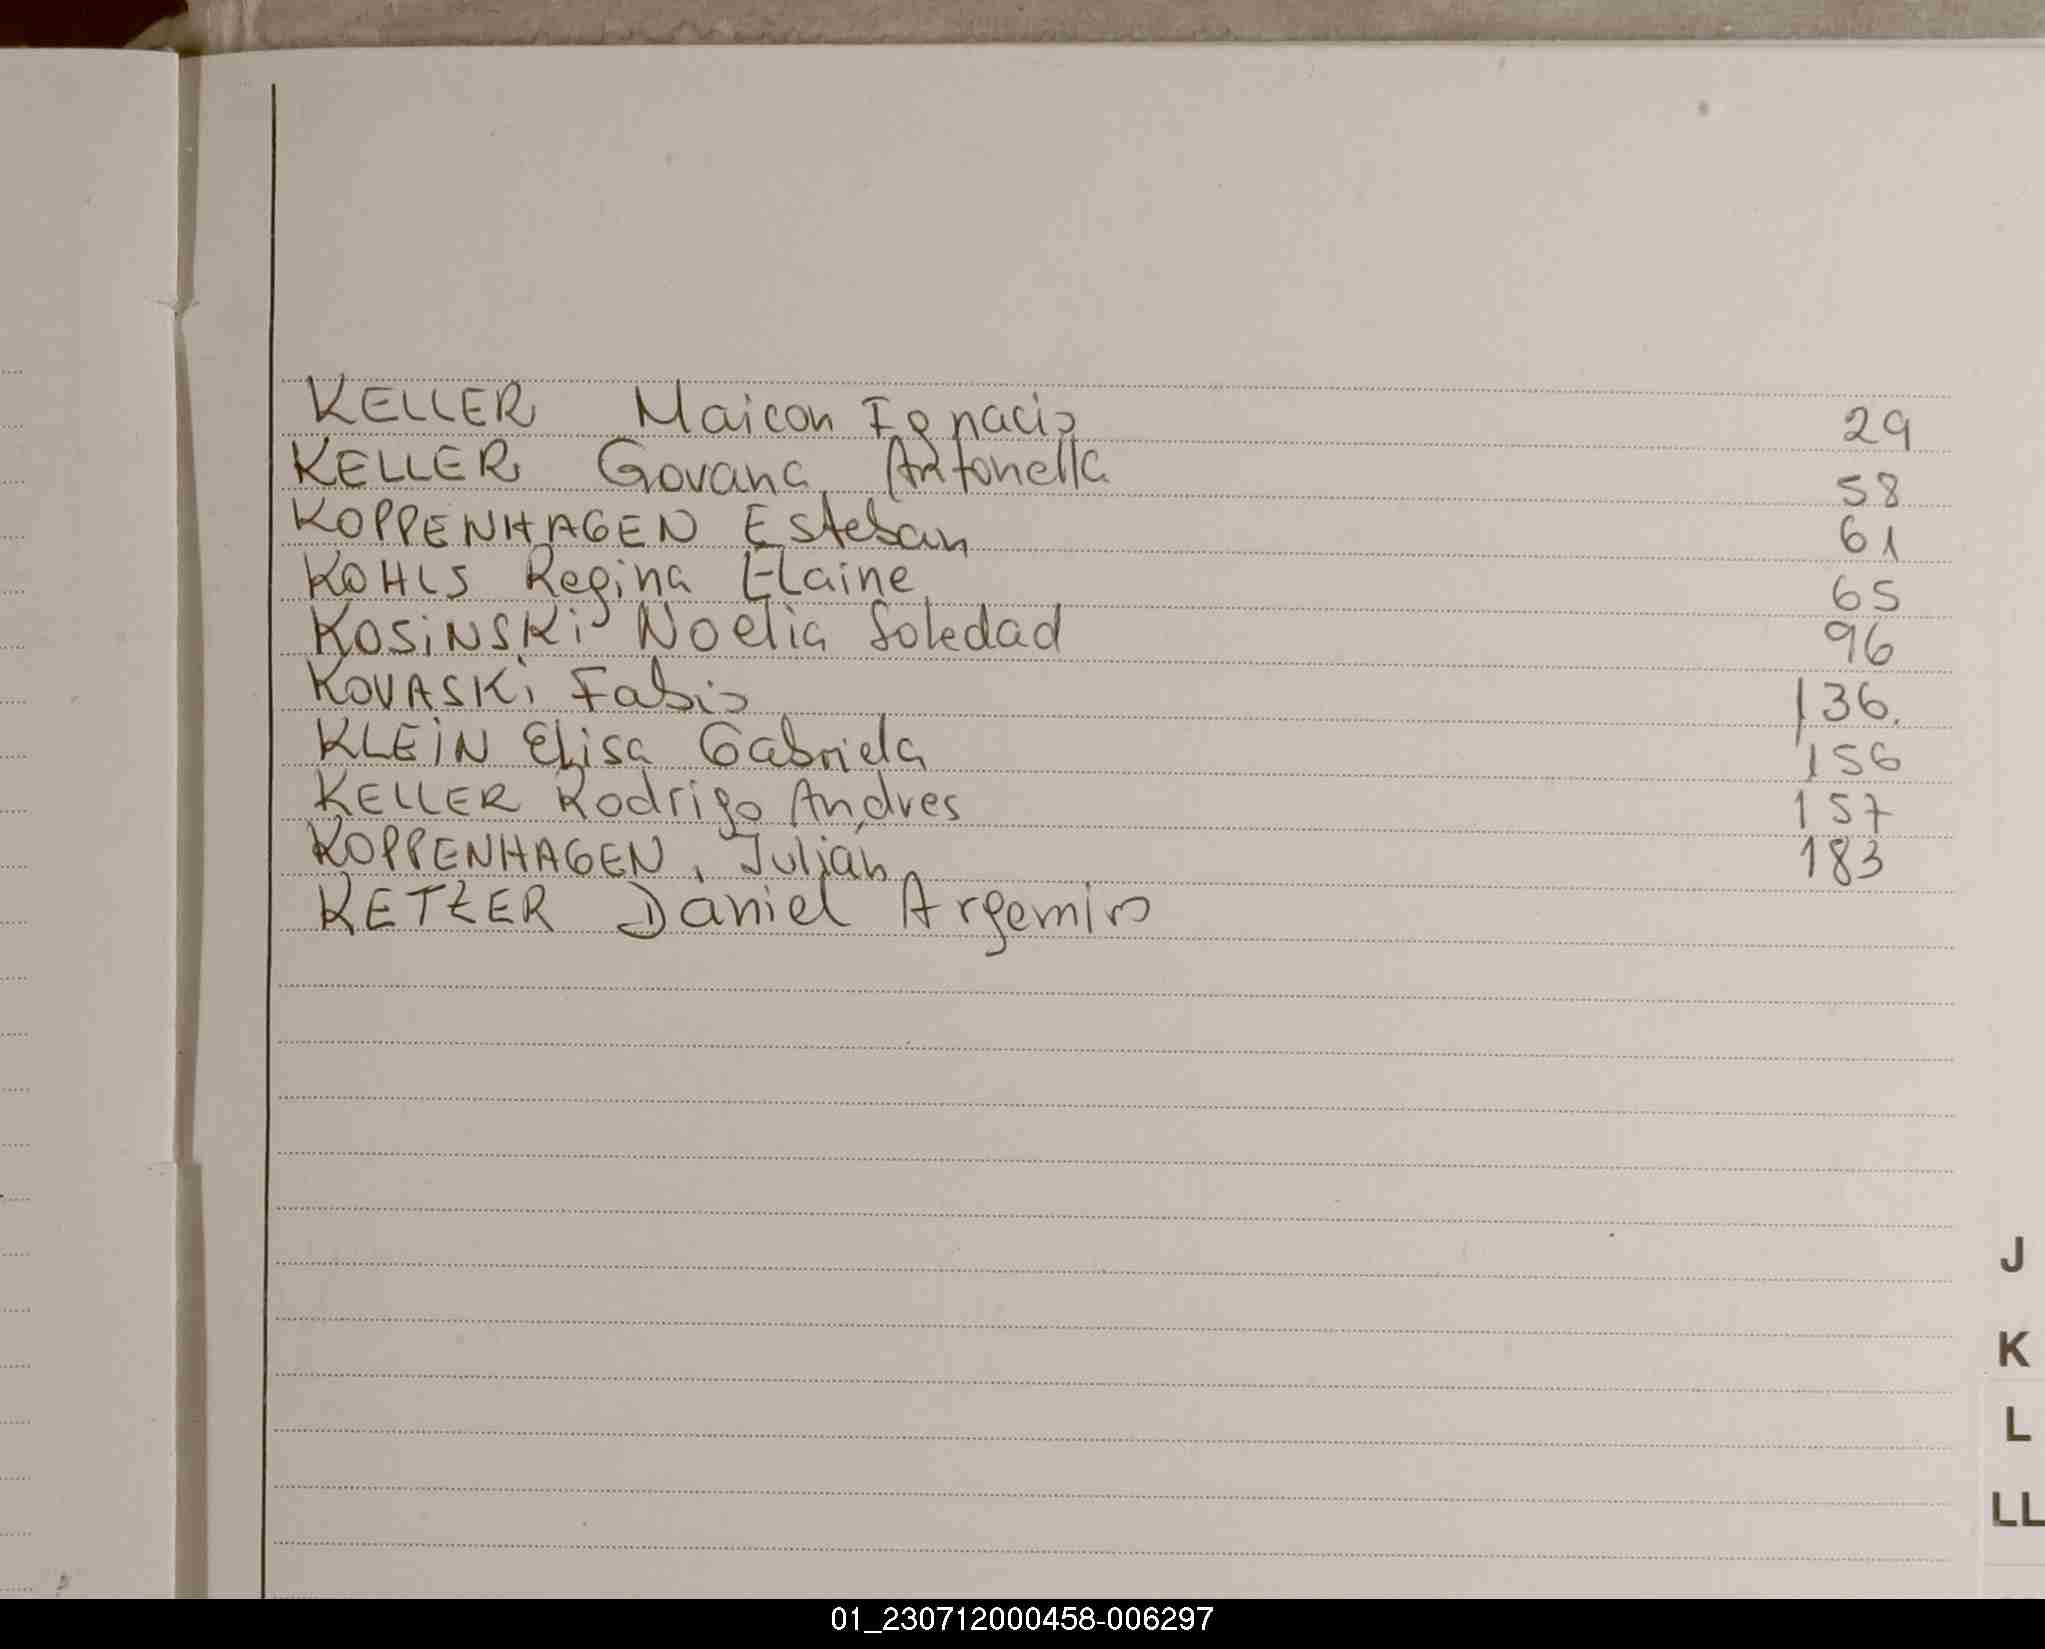 KELLER Maicon Ignacio 29
KELLER Govana Antonella 58
KOPPENHAGEN Esteban 61
KOHLS Regina Elaine 65
KOSiNSKi Noelia Soledad 96
KOVASKi Fabio 136.
KLEiN Elisa Gabriela 156
KELLER Rodrigo Andres 157
KOPPENHAGEN, Julian 183
KETZER Daniel Argemiro
J
K
L
LL
01_230712000458-006297